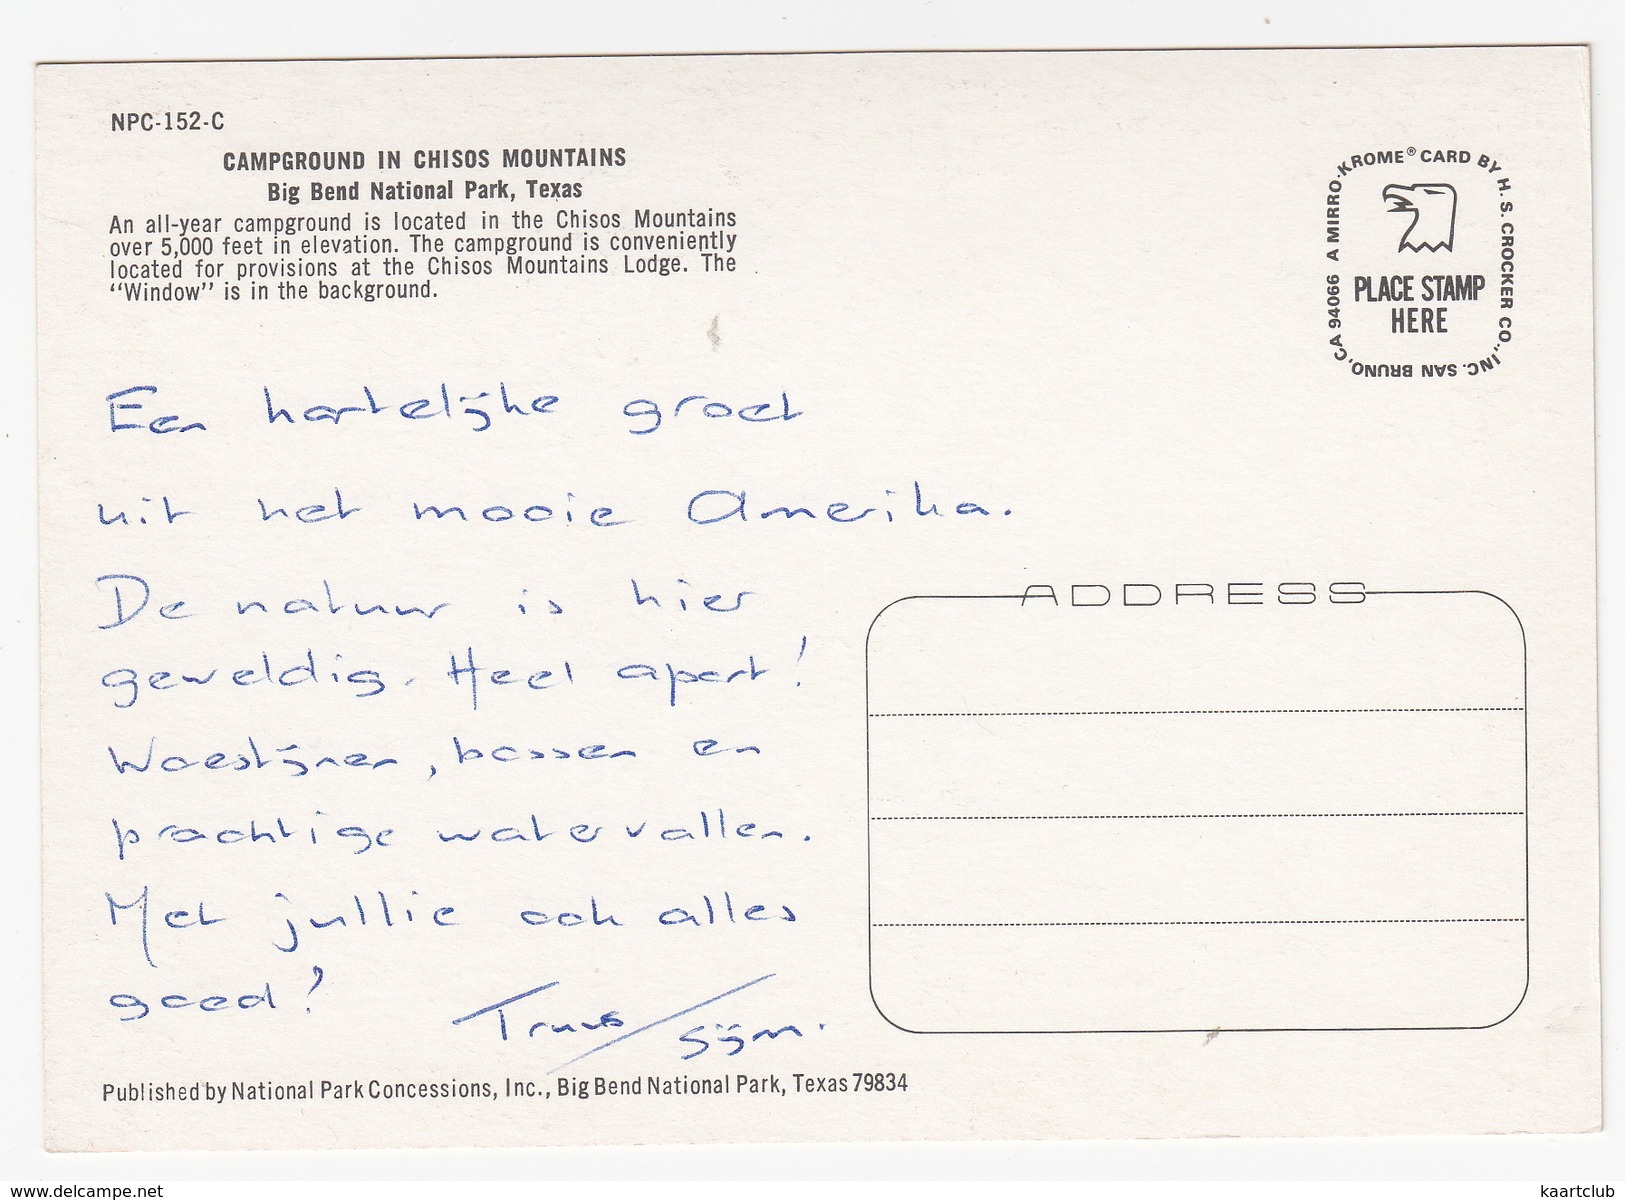 NPC-152-C
CAMPGROUND IN CHISOS MOUNTAINS
Big Bend National Park, Texas
An all-year campground is located in the Chisos Mountains
over 5,000 feet in elevation. The campground is conveniently
located for provisions at the Chisos Mountains Lodge. The
"Window" is in the background.
A MIRRO-KROME® CARD BY H. S. CROCKER CO., INC. SAN BRUNO, CA 94066
PLACE STAMP
HERE
Een hartelijke groet
uit het mooie Amerika.
De natuur is hier
geweldig. Heel apart!
Woestijnen, bossen en
prachtige watervallen.
Met jullie ook alles
goed!
Truus / Sijm.
ADDRESS
Published by National Park Concessions, Inc., Big Bend National Park, Texas 79834
www.delcampe.net
kaartclub